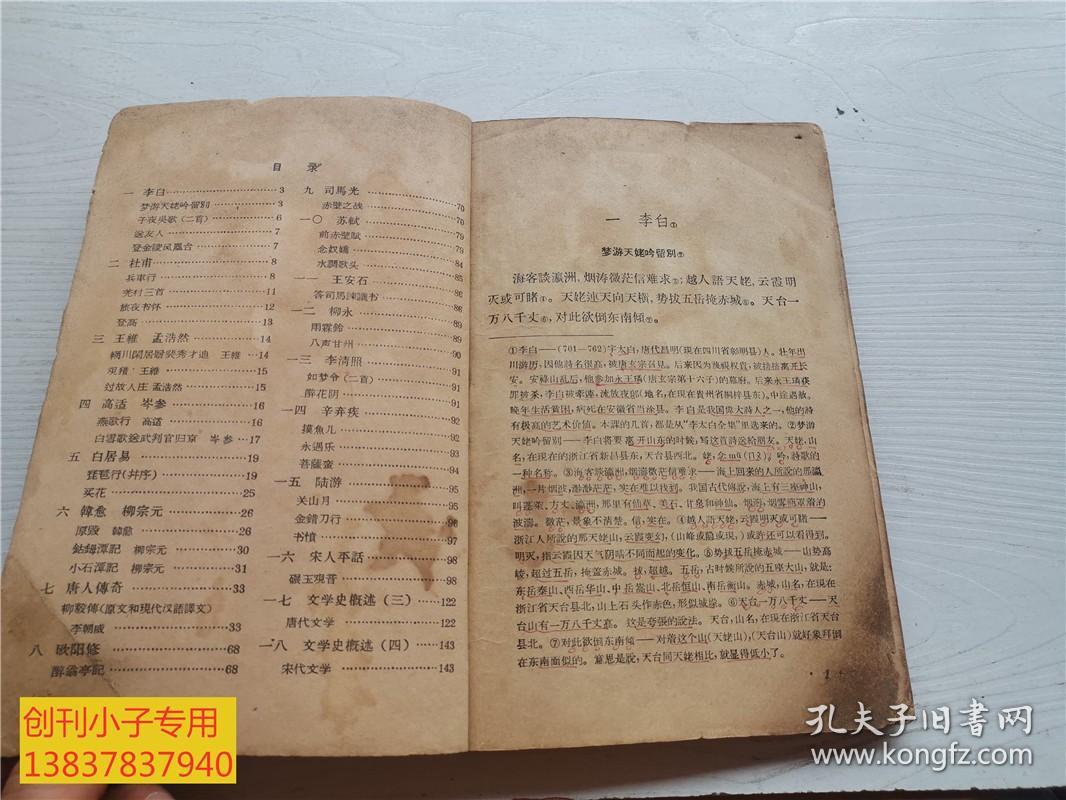 目录
一 李白……3
梦游天姥吟留别……3
子夜吳歌(二首)……6
送友人……7
登金陵凤凰台……7
二 杜甫……8
兵車行……8
羌村三首……11
旅夜书怀……12
登高……13
三 王維 孟浩然……14
輞川閑居贈裴秀才迪 王維……14
观猎 王維……15
过故人庄 孟浩然……15
四 高适 岑参……16
燕歌行 高适……16
白雪歌送武判官归京 岑参……17
五 白居易……19
琵琶行(并序)……19
买花……25
六 韓愈 柳宗元……26
原毁 韓愈……26
鈷鉧潭記 柳宗元……30
小石潭記 柳宗元……31
七 唐人傳奇……33
柳毅傳(原文和現代汉語譯文)
李朝威……33
八 欧阳修……68
醉翁亭記……68
九 司馬光……70
赤壁之战……70
一〇 苏軾……79
前赤壁賦……79
念奴嬌……84
水調歌头……85
一一 王安石……86
答司馬諫議书……86
一二 柳永……89
雨霖鈴……89
八声甘州……90
一三 李清照……91
如梦令(二首)……91
醉花阴……92
一四 辛弃疾……92
摸魚儿……92
永遇乐……93
菩薩蛮……95
一五 陆游……95
关山月……95
金錯刀行……96
书憤……97
一六 宋人平話……98
碾玉观音……98
一七 文学史概述(三)……122
唐代文学……122
一八 文学史概述(四)……143
宋代文学……143
一 李白①
梦游天姥吟留别②
海客談瀛洲,烟涛微茫信难求③;越人語天姥,云霞明
灭或可睹④。天姥連天向天横,势拔五岳掩赤城⑤。天台一
万八千丈⑥,对此欲倒东南傾⑦。
①李白——(701—762)字太白,唐代昌明(現在四川省彰明县)人。壮年出
川游历,因他詩名很高,被唐玄宗召見。后来因为蔑視权貴,被排挤离开长
安。安祿山乱后,他参加永王璘(唐玄宗第十六子)的幕府。后来永王璘获
罪被杀,李白被牽連,流放夜郎(地名,在現在貴州省桐梓县东)。中途遇赦。
晚年生活貧困,病死在安徽省当涂县。李白是我国偉大詩人之一,他的詩
有极高的艺术价值。本課的几首,都是从“李太白全集”里选来的。②梦游
天姥吟留别——李白将要离开山东的时候,写这首詩送給朋友。天姥,山
名,在現在的浙江省新昌县东,天台县西北。姥,念mǔ(ㄇㄨˇ)。吟,詩歌的
一种名称。③海客談瀛洲,烟涛微茫信难求——海上回来的人所說的那瀛
洲,一片烟波,渺渺茫茫,实在难以找到。我国古代傳說,海上有三座神山,
叫蓬莱、方丈、瀛洲,那里有仙草、美石、甘泉和神仙。烟涛,烟雾籠罩着的
波濤。微茫,景象不清楚。信,实在。④越人語天姥,云霞明灭或可睹——
浙江人所說的那天姥山,云霞变幻,(山峰或隐或現,)或許还可以看得到。
明灭,指云霞因天气阴晴不同而起的变化。⑤势拔五岳掩赤城——山势高
峻,超过五岳,掩盖赤城。拔,超越。五岳,古时候所說的五座大山,就是:
东岳泰山、西岳华山、中岳嵩山、北岳恒山、南岳衡山。赤城,山名,在現在
浙江省天台县北,山上石头作赤色,形似城垛。⑥天台一万八千丈——天
台山有一万八千丈高。这是夸張的說法。天台,山名,在現在浙江省天台
县北。⑦对此欲倒东南傾——对着这个山(天姥山),(天台山)就好象拜倒
在东南面似的。意思是說,天台同天姥相比,就显得低小了。
创刊小子专用
13837837940
孔夫子旧書网
www.kongfz.com